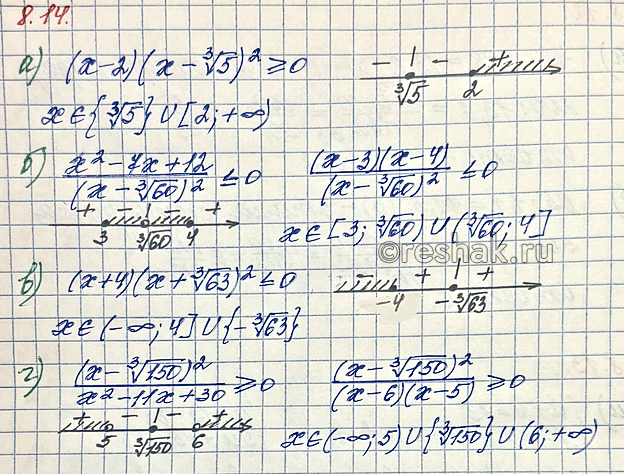 8.14.
а) (x-2)(x-∛5)² ≥ 0
- | - +
∛5 2
x ∈ {∛5} ∪ [2; +∞)
б) (x²-7x+12)/(x-∛60)² ≤ 0 (x-3)(x-4)/(x-∛60)² ≤ 0
+ - | - +
3 ∛60 4
x ∈ [3; ∛60) ∪ (∛60; 4]
©reshak.ru
в) (x+4)(x+∛63)² ≤ 0
- + | +
-4 -∛63
x ∈ (-∞; 4] ∪ {-∛63}
г) (x-∛150)²/(x²-11x+30) ≥ 0 (x-∛150)²/((x-6)(x-5)) ≥ 0
+ - | - +
5 ∛150 6
x ∈ (-∞; 5) ∪ {∛150} ∪ (6; +∞)